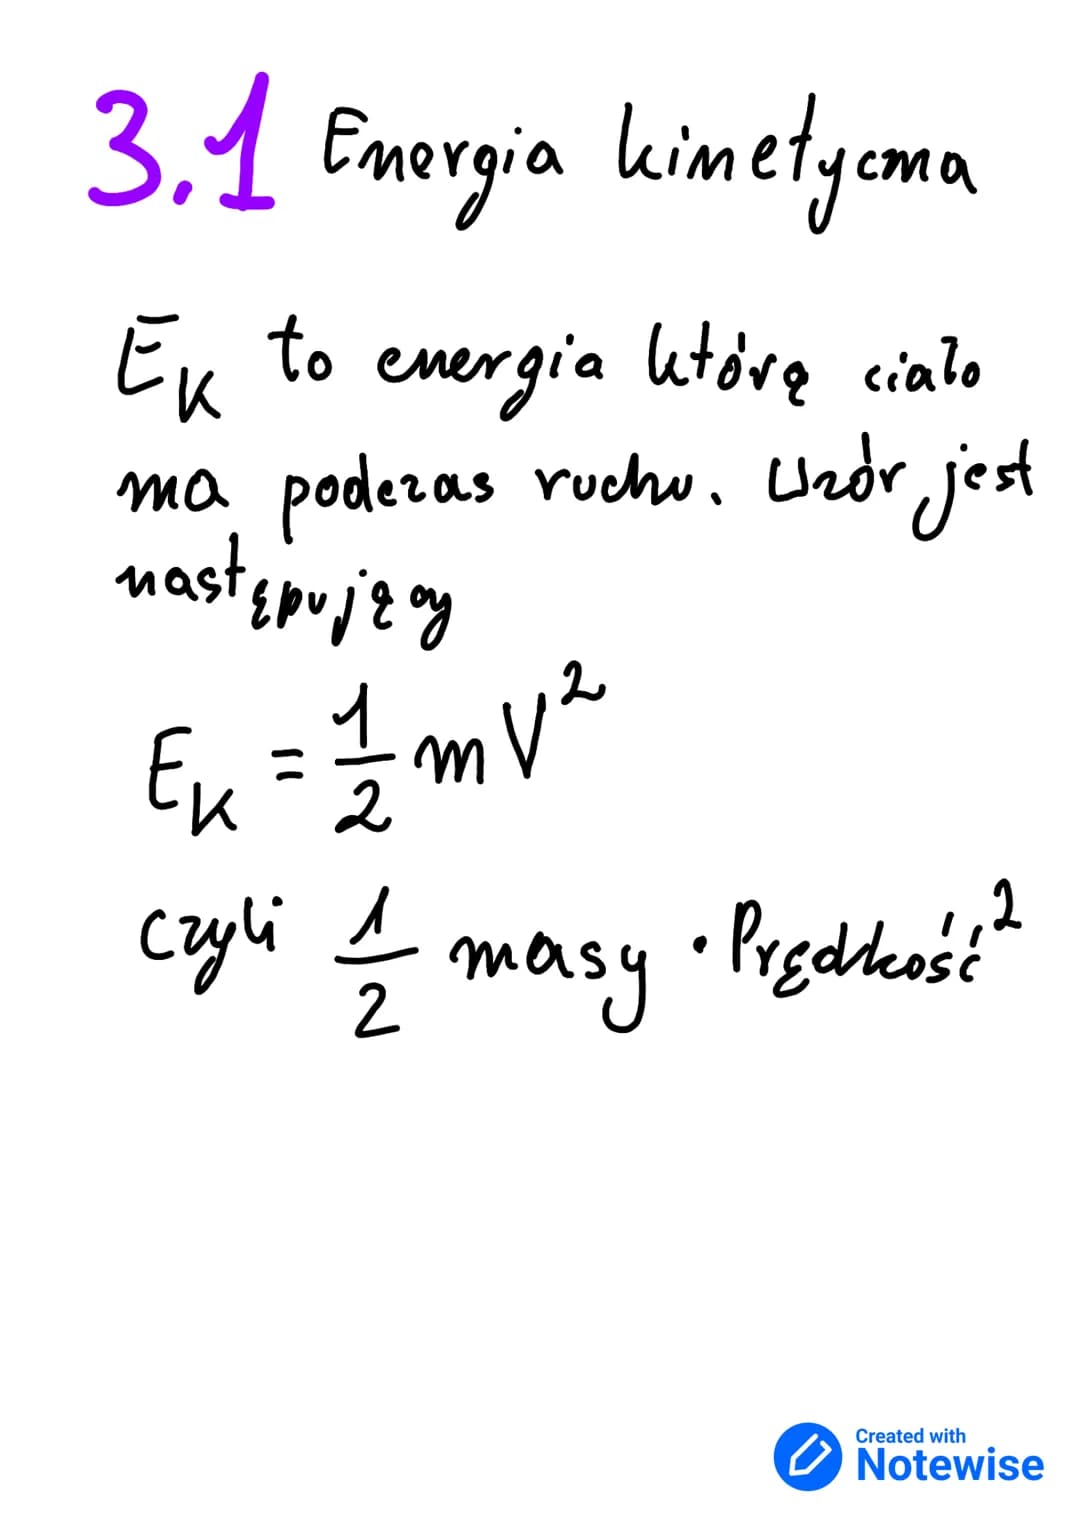 3.1 Energia kinetyczna
Eₖ to energia którą ciało
ma podczas ruchu. Wzór jest
następujący
Eₖ = 1/2 mV²
czyli 1/2 masy · Prędkość²
Created with
Notewise